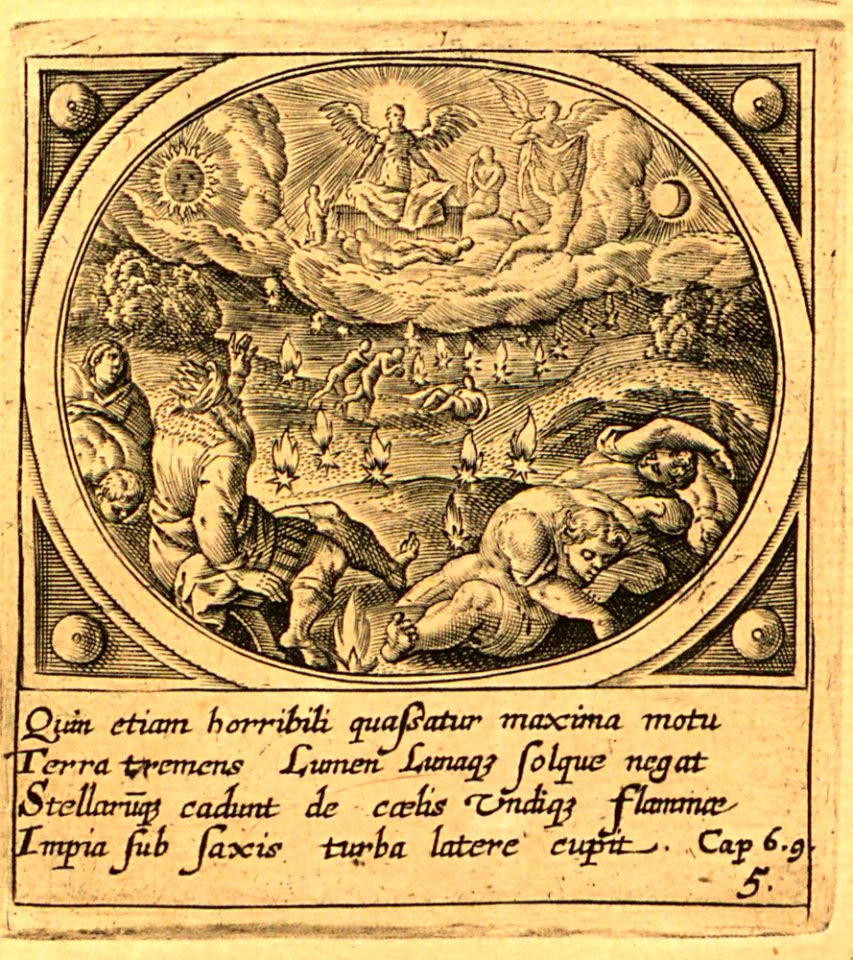 Quin etiam horribili quaſsatur maxima motu
Terra tremens Lumen Lunaqꝫ ſolque negat
Stellarūqꝫ cadunt de cœlis Vndiqꝫ flammæ
Impia ſub ſaxis turba latere cupit. Cap 6.9.
5.